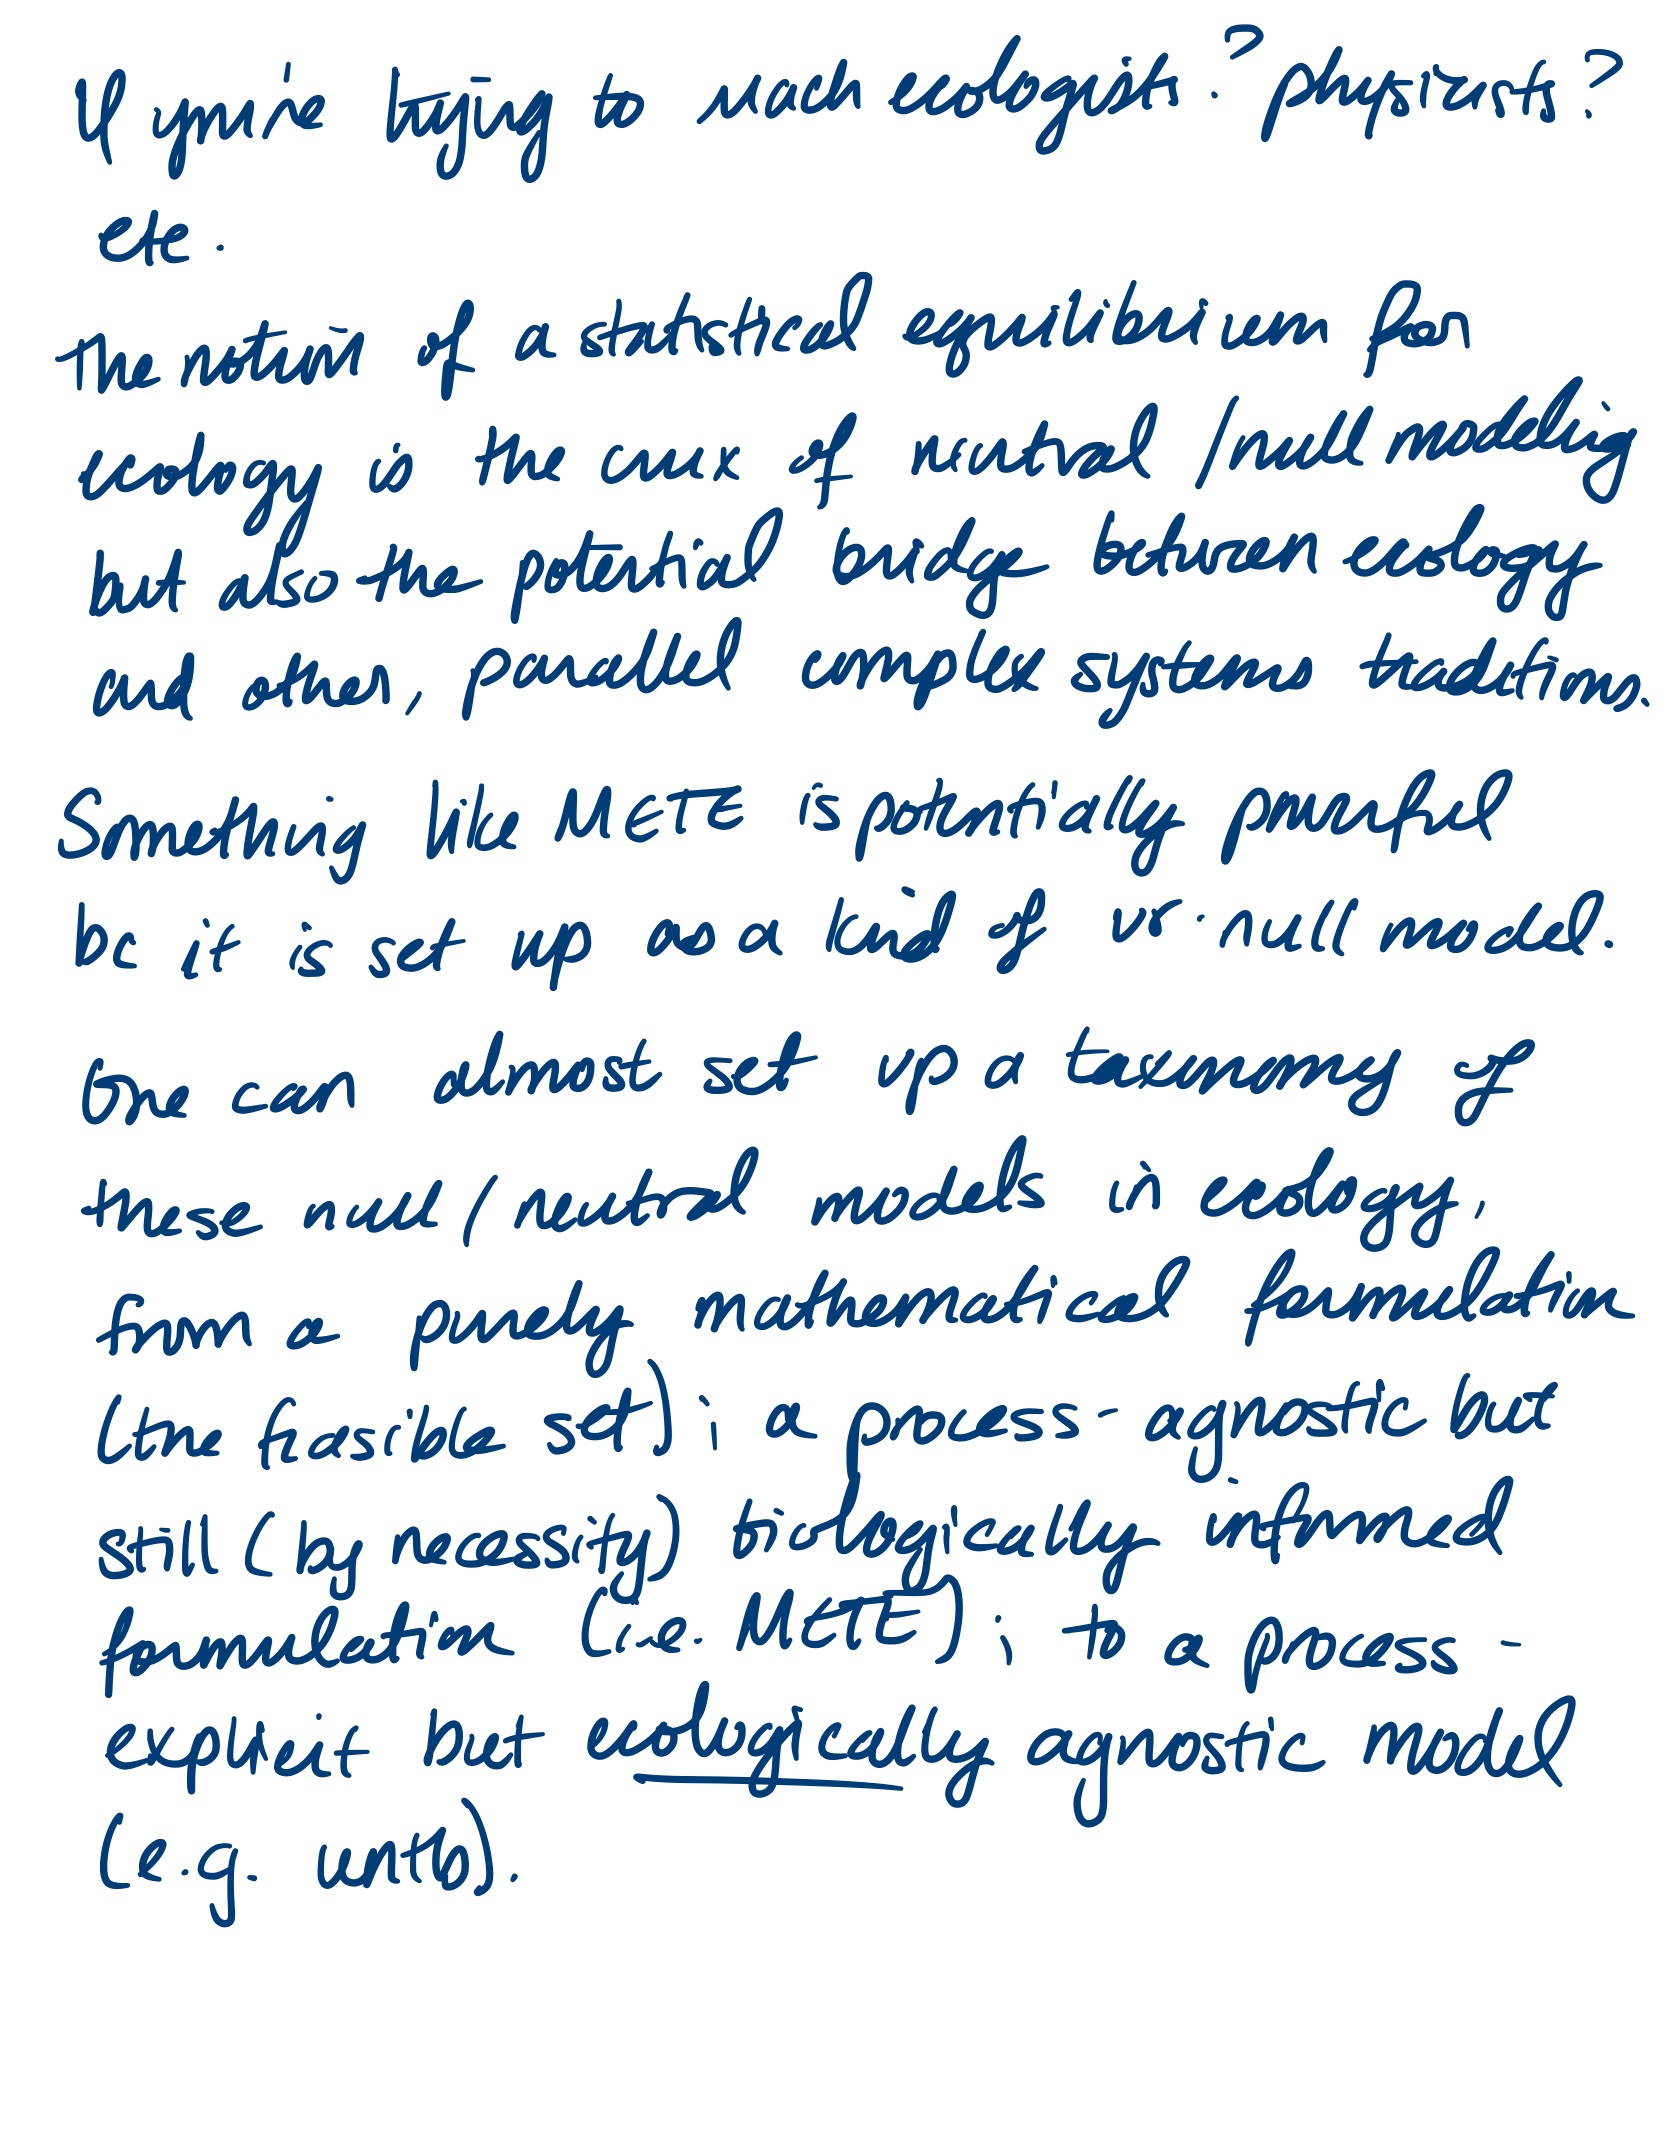 If you're trying to reach ecologists? physicists?
etc.
The notion of a statistical equilibrium for
ecology is the crux of neutral/null modeling
but also the potential bridge between ecology
and other, parallel complex systems traditions.
Something like METE is potentially powerful
bc it is set up as a kind of null model.
One can almost set up a taxonomy of
these null/neutral models in ecology,
from a purely mathematical formulation
(the feasible set); a process-agnostic but
still (by necessity) biologically informed
formulation (i.e. METE); to a process-
explicit but ecologically agnostic model
(e.g. untb).